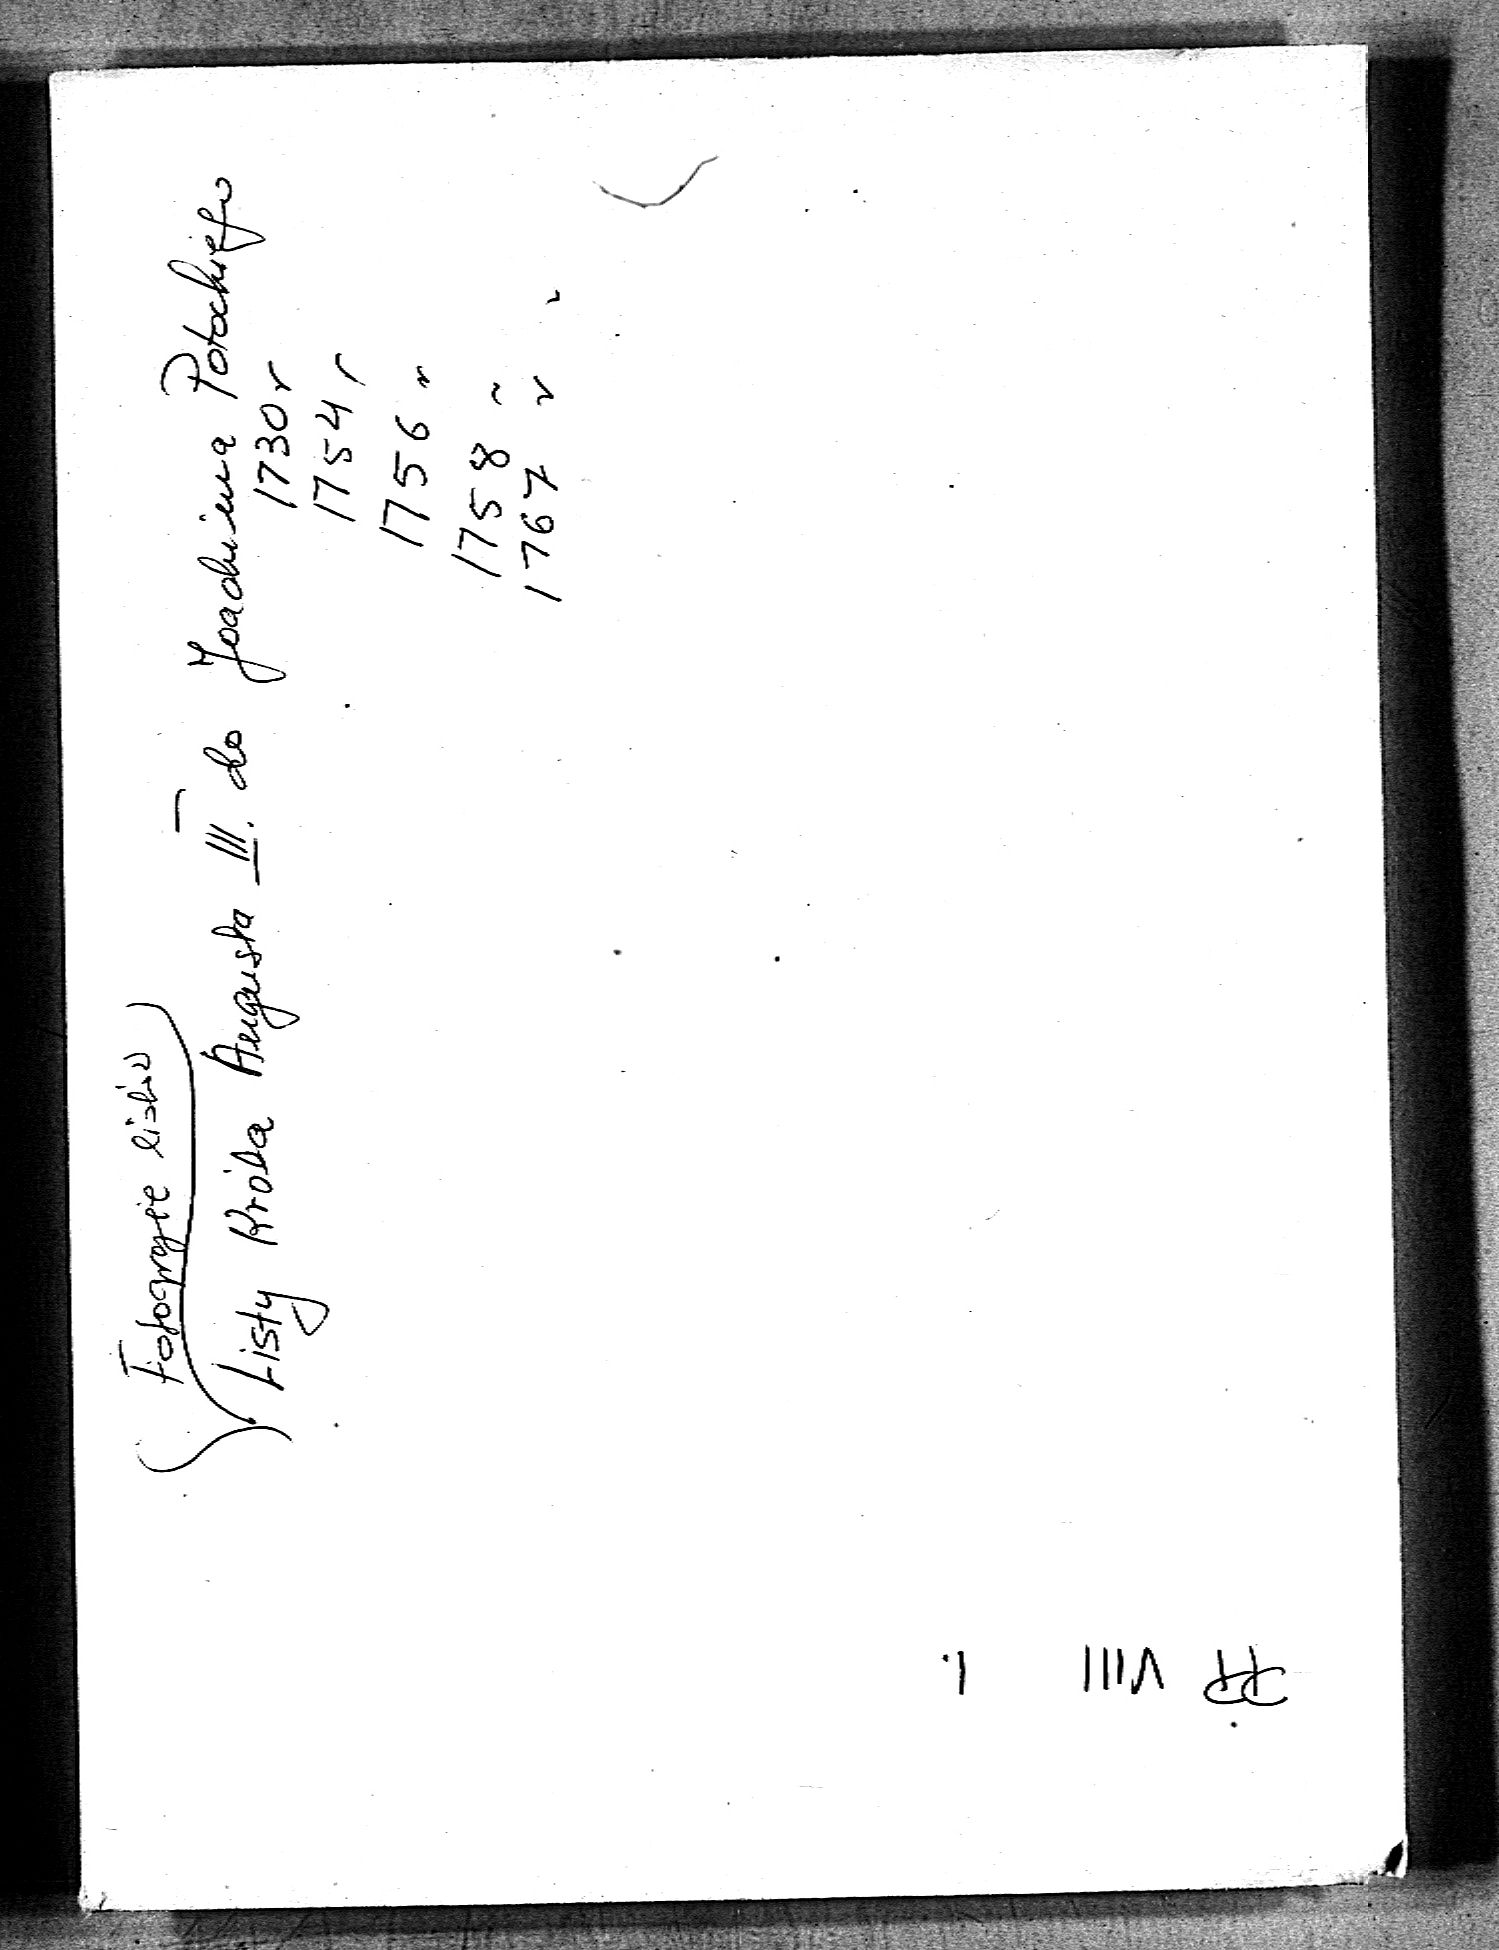 Fotografie listów
Listy Króla Augusta III. do Joachima Potockiego
1730 r
1754 r
1756 r
1758 r
1767 r
VIII 1.